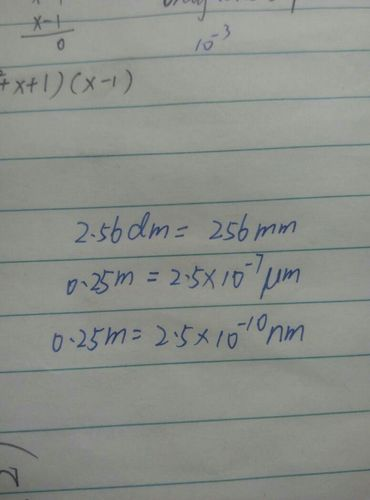 x-1
0
10⁻³
+x+1)(x-1)
2.56dm = 256mm
0.25m = 2.5×10⁻⁷μm
0.25m = 2.5×10⁻¹⁰nm